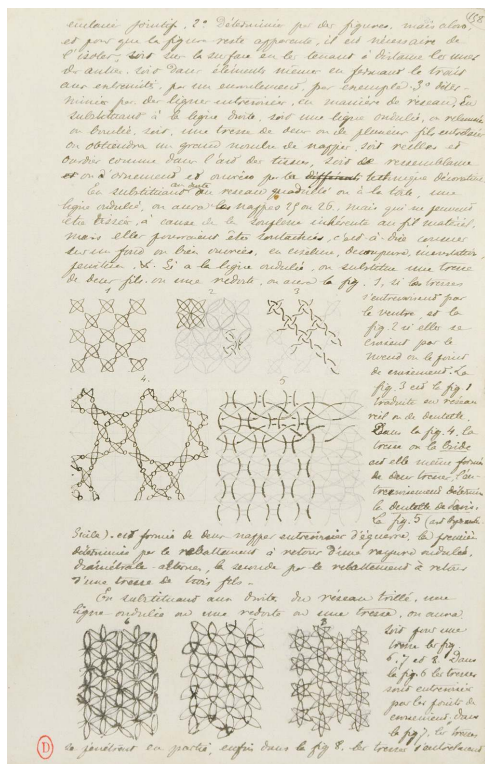 458
surface jointif. 2° Déterminée par des figures, mais alors,
et pour que la figure reste apparente, il est nécessaire de
l'isoler, soit sur la surface en les tenant à distance les unes
des autres, soit dans éléments mêmes en fermant le trait
aux extrémités, par un enroulement, par exemple 3° déter-
minée par des lignes entrecroisées, en manière de réseau. En
substituant à la ligne droite, soit une ligne ondulée, ou
ou bouclée, soit, une tresse de deux ou de plusieurs fils entrelacés
on obtiendra un grand nombre de nappes, soit réelles et
ourdies comme dans l'art des tissus, soit de ressemblance
et ou d'ornement et ouvrées par la différente technique décorative
En substituant au réseau quadrillé ou à la tête, une
aux droites
ligne ondulée, on aura les nappes 25 ou 26, mais qui ne peuvent
être tissées, à cause de la souplesse inhérente au fil matériel,
mais elles pourraient être soutachées, c'est à dire cousues
sur un fond ou bien ouvrées, en
&. Si à la ligne ondulée, on substitue une tresse
de deux fils ou une redorte, on aura la fig. 1, si les tresses
s'entrecroisent par
le ventre, et la
fig. 2 si elles se
croisent par le
nœud ou le point
de croisement. La
fig. 3 est la fig. 1
traduite en réseau
réel ou de dentelle.
Dans la fig. 4, la
tresse ou la bride
est elle même formée
de deux tresses, l'en-
trecroisement détermine
la dentelle de
La fig. 5
1
2
3
4.
5
est formée de deux nappes entrecroisées d'équerre, la première
déterminée par le rabattement à retours d'une rayure ondulée,
diamétrale alterne, la seconde par le rabattement à retour
d'une tresse de trois fils -
En substituant aux droites du réseau trillé, une
ligne ondulée ou une redorte ou une tresse, on aura
soit pour une
tresse les fig.
6, 7 et 8. Dans
la fig. 6 les tresses
sont entrecroisées
par les points de
croisement, dans
la fig 7, les tresses
6
7
8
se pénètrent en partie, enfin dans la fig 8, les tresses s'entrelacent
D